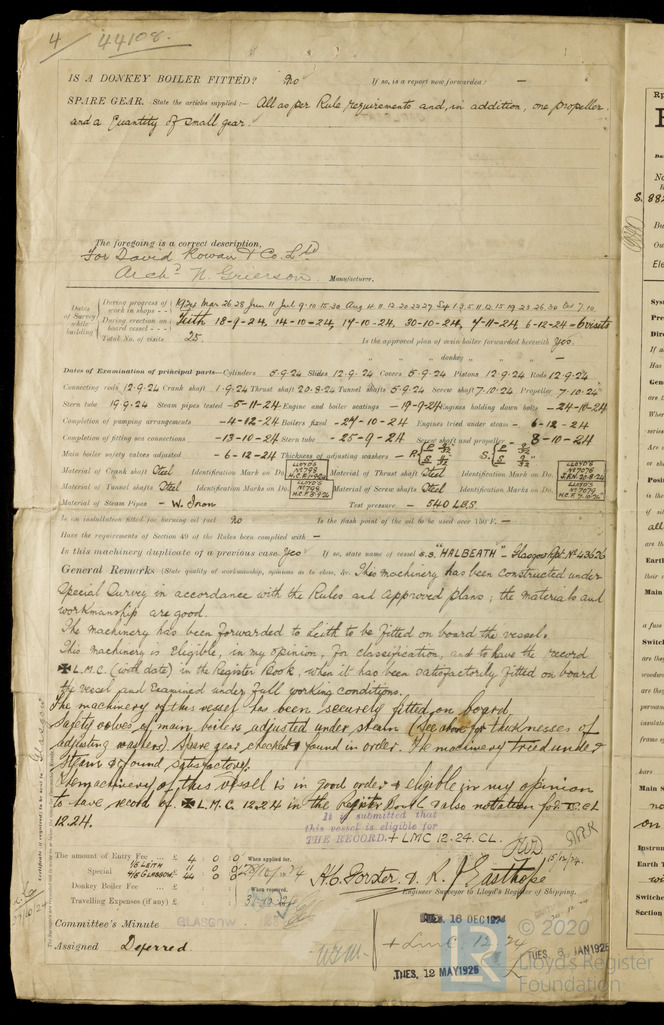 4 44108.
IS A DONKEY BOILER FITTED? No If so, is a report now forwarded? —
SPARE GEAR. State the articles supplied:— All as per Rule requirements and, in addition, one propeller
and a Quantity of small gear.
The foregoing is a correct description,
For David Rowan & Co. Ltd
Archd N. Grierson. Manufacturer.
Dates of Survey while building
During progress of work in shops - - 1924 Mar 26.28 Jun 11 Jul 9.10.15.30 Aug 4.11.12.20.22.27 Sep 1.3.5.11.12.15.19.23.26.30 Oct 7.10
During erection on board vessel - - - Leith 18-9-24, 14-10-24, 17-10-24, 30-10-24, 7-11-24, 6-12-24 = 6 visits
Total No. of visits 25. Is the approved plan of main boiler forwarded herewith Yes.
" " " donkey " " " —
Dates of Examination of principal parts—Cylinders 5.9.24 Slides 12.9.24 Covers 5.9.24 Pistons 12.9.24 Rods 12.9.24
Connecting rods 12.9.24 Crank shaft 1.9.24 Thrust shaft 20.8.24 Tunnel shafts 5.9.24 Screw shaft 7.10.24 Propeller 7.10.24
Stern tube 19.9.24 Steam pipes tested -5-11-24 Engine and boiler seatings -19-9-24 Engines holding down bolts -24-10-24
Completion of pumping arrangements -4-12-24 Boilers fixed -27-10-24 Engines tried under steam - 6-12-24
Completion of fitting sea connections -13-10-24 Stern tube -25-9-24 Screw shaft and propeller 8-10-24
Main boiler safety valves adjusted -6-12-24 Thickness of adjusting washers
Material of Crank shaft Steel Identification Mark on Do. LLOYD'S No 798 Material of Thrust shaft Steel Identification Mark on Do. LLOYD'S No 7076 J.R.N. 20.8.24
Material of Tunnel shafts Steel Identification Marks on Do. LLOYD'S No 798 Material of Screw shafts Steel Identification Marks on Do. LLOYD'S No 7079
Material of Steam Pipes - W. Iron Test pressure - 540 LBS.
Is an installation fitted for burning oil fuel No Is the flash point of the oil to be used over 150°F. —
Have the requirements of Section 49 of the Rules been complied with —
Is this machinery duplicate of a previous case Yes If so, state name of vessel S.S. "HALBEATH" - Glasgow Rpt. No 43626
General Remarks (State quality of workmanship, opinions as to class, &c. This machinery has been constructed under
Special Survey in accordance with the Rules and Approved plans; the materials and
workmanship are good.
The machinery has been forwarded to Leith to be fitted on board the vessel.
This machinery is eligible, in my opinion, for classification, and to have the record
✠ L.M.C. (with date) in the Register Book, when it has been satisfactorily fitted on board
the vessel and examined under full working conditions.
The machinery of this vessel has been securely fitted on board,
Safety valves of main boilers adjusted under steam (See above for thicknesses of
adjusting washers). Spare gear checked & found in order. The machinery tried under
steam & found satisfactory.
The machinery of this vessel is in good order & eligible in my opinion
to have record of ✠ L.M.C. 12.24 in the Register Book & also notation for CL
12.24.
It is submitted that
this vessel is eligible for
THE RECORD. + LMC 12.24. CL.
15/12/24.
The amount of Entry Fee ... £ 4 0 0 When applied for,
Special
Donkey Boiler Fee ... £
Travelling Expenses (if any) £
When received,
R. J. Easthope
Engineer Surveyor to Lloyd's Register of Shipping.
Committee's Minute GLASGOW
Assigned Deferred.
TUES. 16 DEC 1924
+ L.M.C. 12.24
TUES. 12 MAY 1925
TUES. 6 JAN 1925
© 2020
LR
Lloyd's Register
Foundation